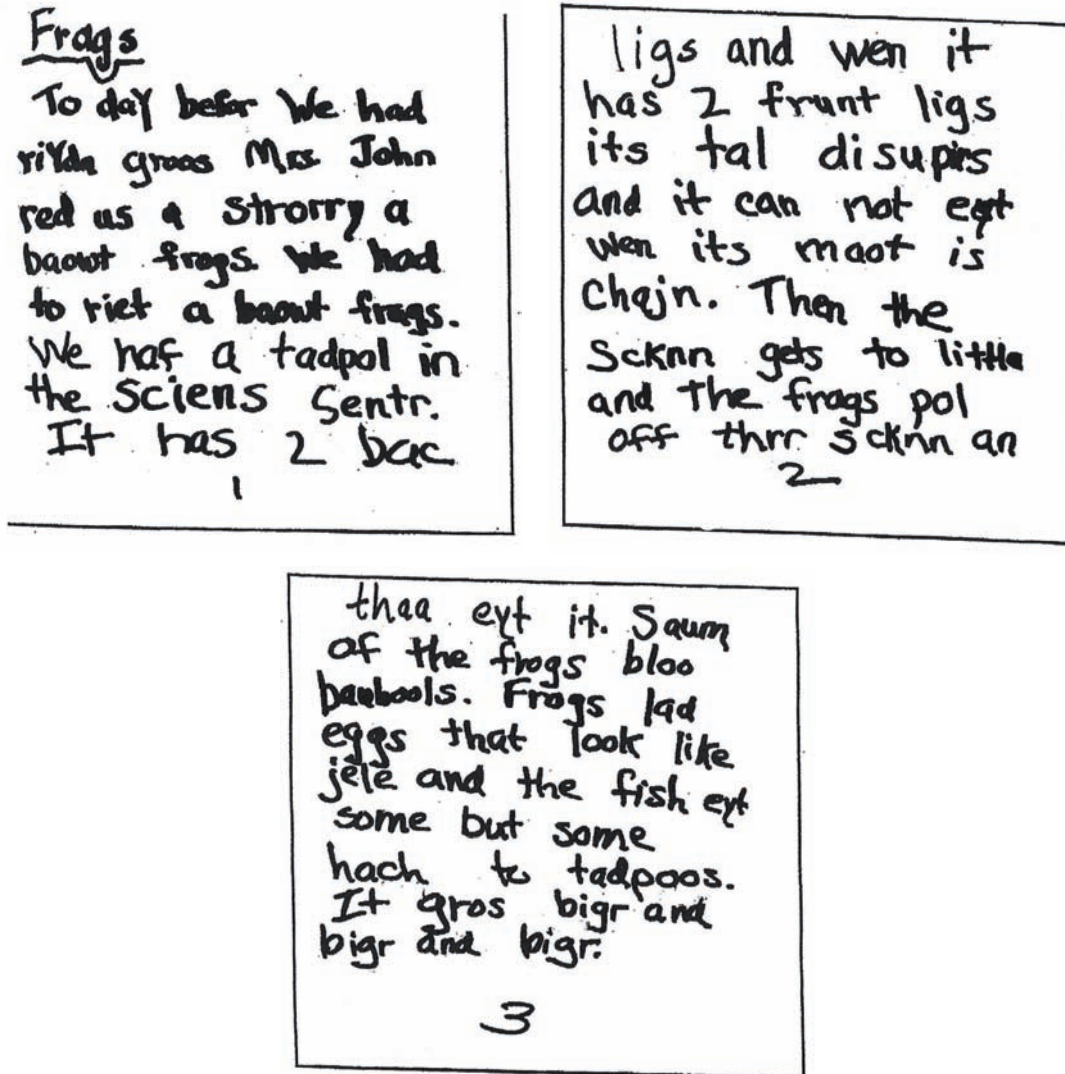 Frags
To day befor We had
riYdn groos Mrs. John
red us a strorry a
baowt frogs. We had
to riet a baowt frags.
We haf a tadpol in
the sciens Sentr.
It has 2 bac
1
ligs and wen it
has 2 frunt ligs
its tal disupirs
and it can not eyt
wen its maot is
Chajn. Then the
Scknn gets to little
and the frags pol
off thrr scknn an
2
thaa eyt it. Saum
af the frogs bloo
baubools. Frogs lad
eggs that look like
jele and the fish eyt
some but some
hach to tadpoos.
It gros bigr and
bigr and bigr.
3